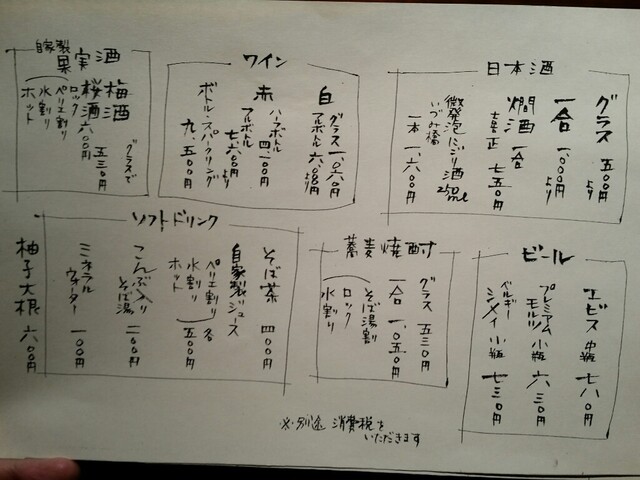 日本酒
グラス 五〇〇円より
一合 一、〇〇〇円より
燗酒 一合
七五〇円
微発泡にごり酒 250ml
いづみ橋
一本 一、六〇〇円
ワイン
白
グラス 一、〇六〇円
フルボトル 六、〇〇〇円より
赤
ハーフボトル 四、一〇〇円
フルボトル 七六〇〇円より
ボトル・スパークリング
九、五〇〇円
自家製
果実酒
グラスで
梅酒 五三〇円
桜酒 六〇〇円
ロック
ペリエ割り
水割り
ホット
ビール
エビス 中瓶 七八〇円
プレミアム
モルツ 小瓶 六三〇円
ベルギー
シメイ 小瓶 七三〇円
蕎麦焼酎
グラス 五三〇円
一合 一、〇五〇円
そば湯割
ロック
水割り
ソフトドリンク
そば茶 四〇〇円
自家製ジュース
ペリエ割り
水割り
ホット
各 五〇〇円
こんぶ入り
そば湯 二〇〇円
ミネラル
ウォーター 一〇〇円
柚子大根 六〇〇円
※別途 消費税を
いただきます